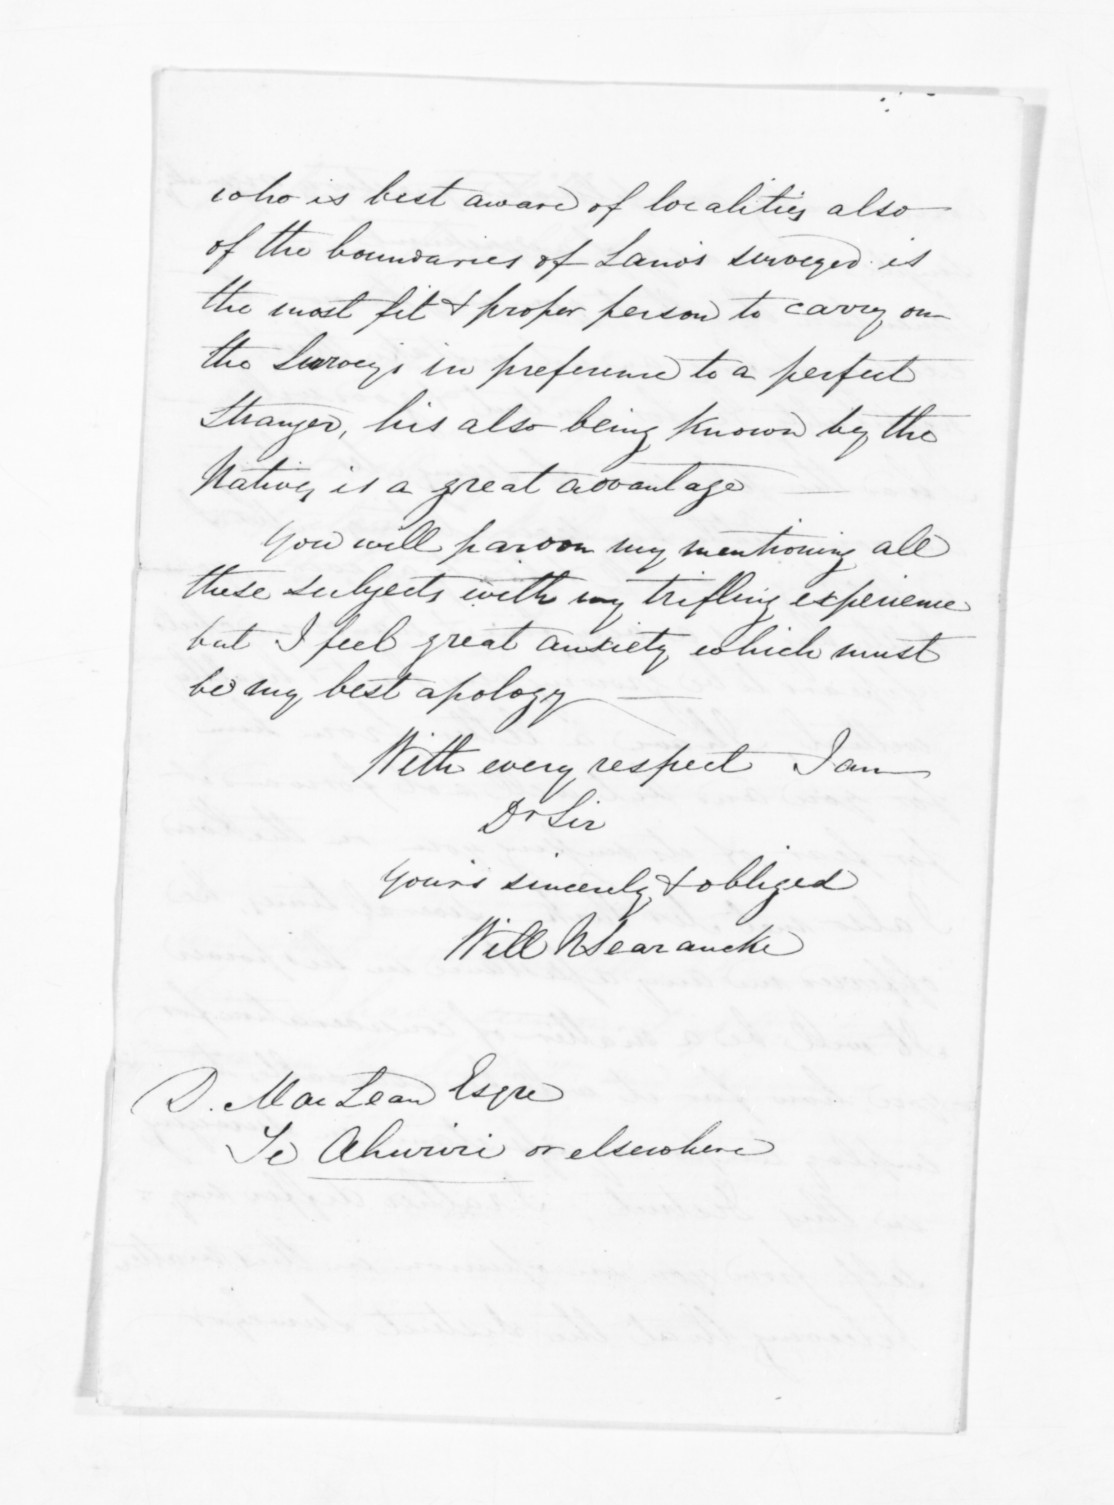 who is best aware of localities also
of the boundaries of Lands surveyed is
the most fit & proper person to carry on
the Surveys in preference to a perfect
Stranger, his also being known by the
Natives is a great advantage —
You will pardon my mentioning all
these subjects with my trifling experience
but I feel great anxiety which must
be my best apology —
With every respect I am
Dr Sir
Your's sincerely & obliged
Will N Searancke
D. MacLean Esqre
Te Ahuriri or elsewhere